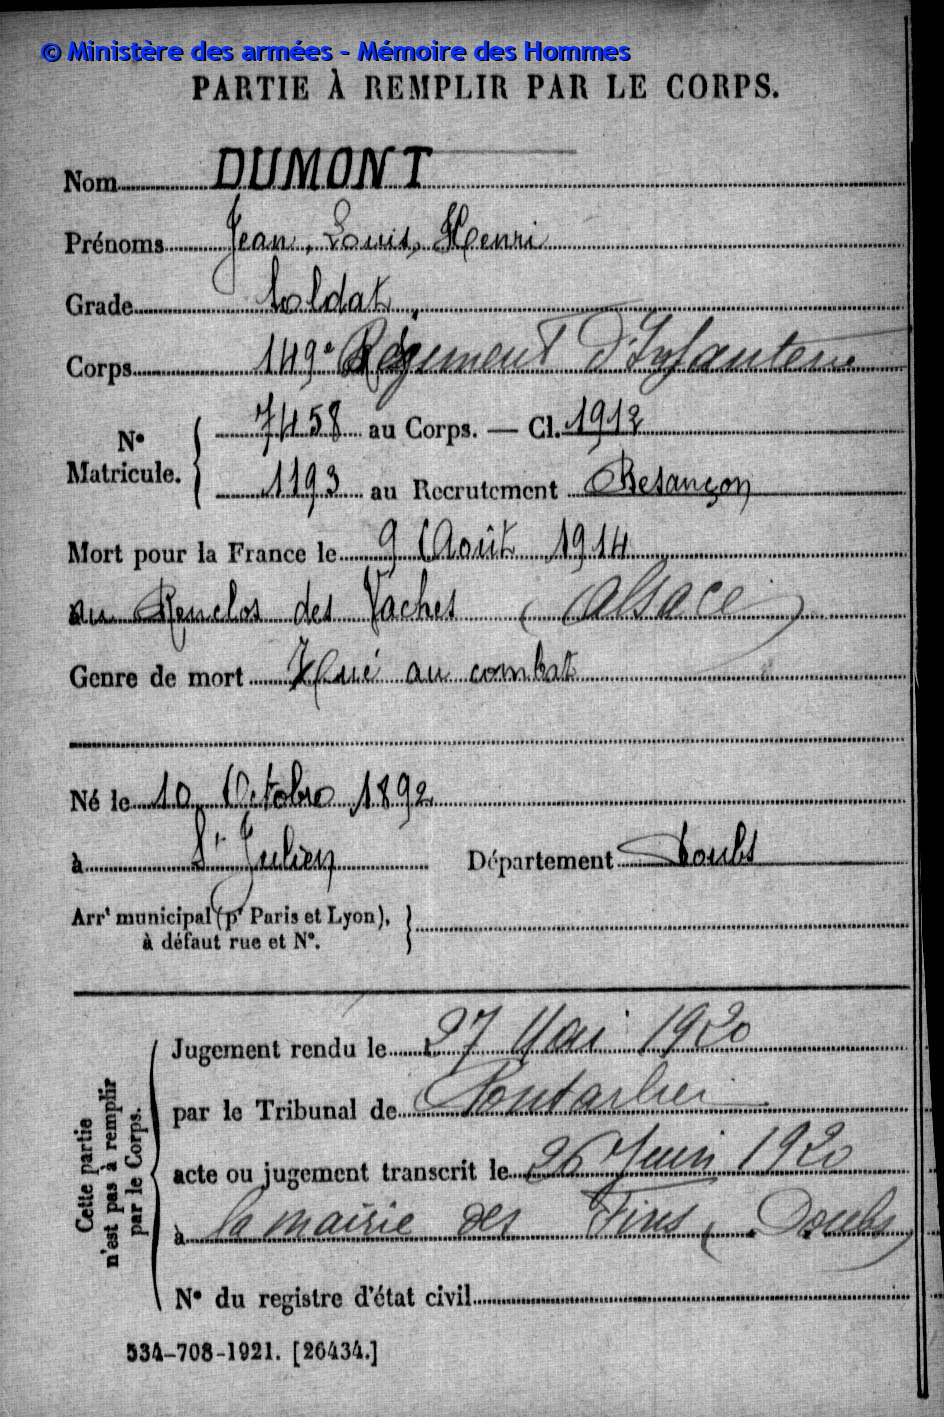 © Ministère des armées - Mémoire des Hommes
PARTIE À REMPLIR PAR LE CORPS.
Nom DUMONT
Prénoms Jean, Louis, Henri
Grade Soldat
Corps 149e Régiment d'Infanterie
N° Matricule. { 7458 au Corps. — Cl. 1912
1193 au Recrutement Besançon
Mort pour la France le 9 Août 1914
au Renclos des Vaches (Alsace)
Genre de mort Tué au combat
Né le 10 Octobre 1892
à St Julien Département Doubs
Arrt municipal (pr Paris et Lyon), }
à défaut rue et N°.
Cette partie n'est pas à remplir par le Corps.
Jugement rendu le 27 Mai 1920
par le Tribunal de Pontarlier
acte ou jugement transcrit le 26 Juin 1920
à la mairie des Fins (Doubs)
N° du registre d'état civil
534-708-1921. [26434.]